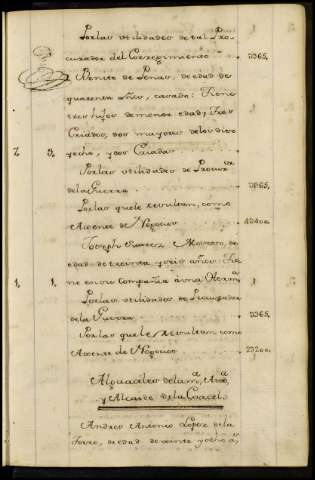 Por las utilidades de tal Pro
curador del Corregimiento 0365.
Benito de, de edad de
quarenta Años, casado: Tiene
tres hijos de menor edad; Tres
Criados, dos mayores de los diez
7. 3. yocho, y dos Criadas
Por las utilidades de Procur.or
de la Guerra
Por las que le resultan, como
Agente de Negocios
Joseph Suarez, de
edad de treinta y seis años: Tie
1. 1. ne en su Compañia a una Herm.a 1
Por las utilidades de Procurador
de la Guerra 0365.
Por las que le resultan como
Agente de Negocios
Alguaciles
y Alcaide de la Carcel
Andres Antonio Lopez de la
Torre, de edad de veinte y ocho a.s